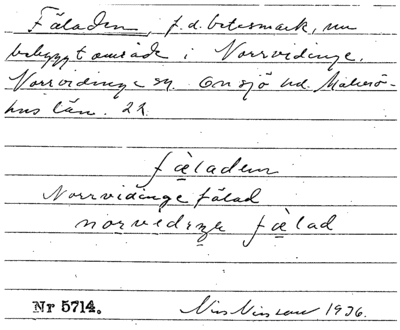 Fäladen, f.d. betesmark, nu
bebyggt område i Norrvidinge,
Norrvidinge sn. Onsjö hd. Malmö-
hus län. 22.
fäladen
Norrvidinge fälad
norvediŋe fälad
Nr 5714.
Nils Nilsson 1936.